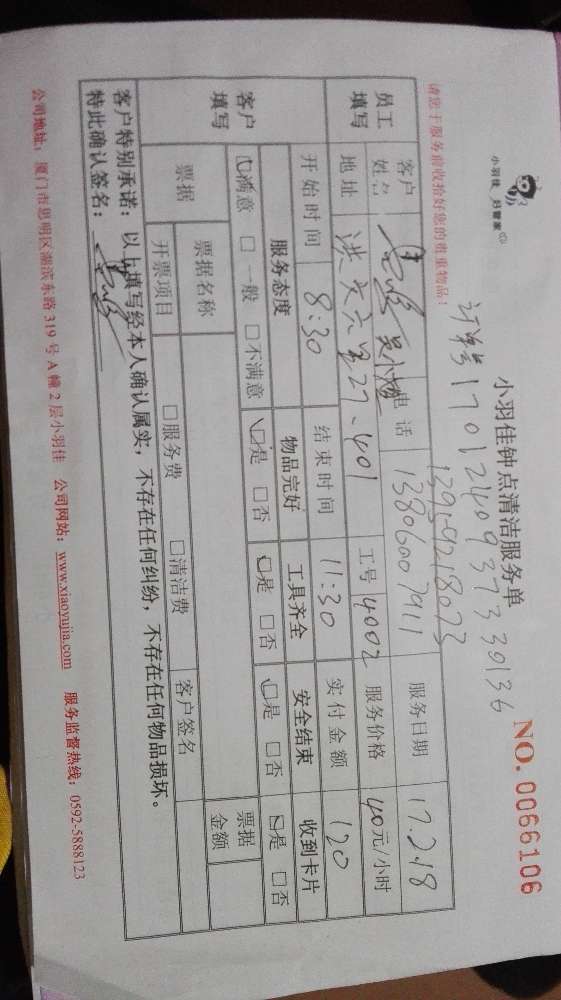 小羽佳_好管家
小羽佳钟点清洁服务单
NO. 0066106
订单号170124093733036
13959218023
请您于服务前收拾好您的贵重物品!
员工填写
客户姓名 电话 13806007911 服务日期 17.2.18
地址 洪文六里27-401 工号 4002 服务价格 40元/小时
开始时间 8:30 结束时间 11:30 实付金额 120
客户填写
服务态度 物品完好 工具齐全 安全结束 收到卡片
☑满意 □一般 □不满意 ☑是 □否 ☑是 □否 ☑是 □否 ☑是 □否
票据 票据名称 票据金额
开票项目 □服务费 □清洁费 客户签名
客户特别承诺:以上填写经本人确认属实,不存在任何纠纷,不存在任何物品损坏。
特此确认签名:
公司地址:厦门市思明区湖滨东路319号A幢2层小羽佳 公司网站:www.xiaoyujia.com 服务监督热线:0592-5888123